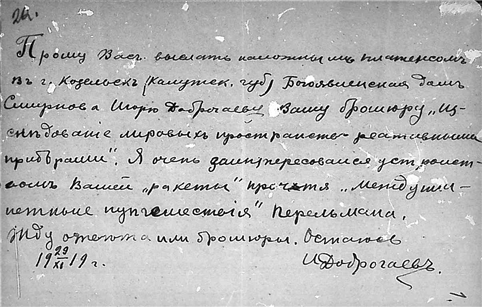 24.
Прошу Вас выслать наложным платежом
в г. Козельск (Калужск. губ) Богоявленская дом
Смирнова Игорю Доброгаеву Вашу брошюру „Из-
следованіе мировыхъ пространств реактивными
приборами". Я очень заинтересовался устройст-
вом Вашей „ракеты" прочтя „Междупла-
нетные путешествія" Перельмана.
Жду ответа или брошюры. Остаюсь
19 29/XI 19 г. И Доброгаевъ.